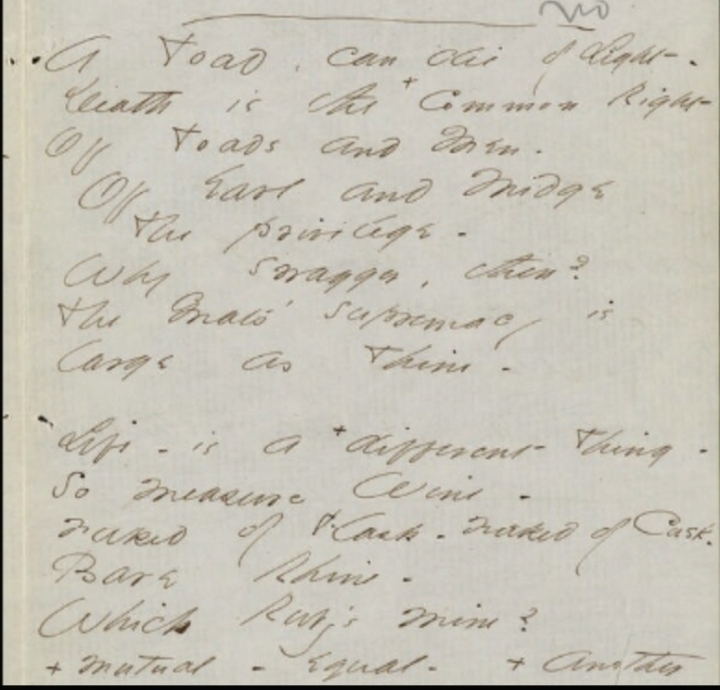 No
A Toad, can die of Light -
Death is the + Common Right
Of Toads and Men -
Of Earl and Midge
The privilege -
Why swagger, then?
The Gnat's supremacy is
large as Thine -
Life - is a + different Thing -
So measure Wine -
Naked of Flask - Naked of Cask -
Bare Rhine -
Which Ruby's mine?
+ mutual - Equal - + Another